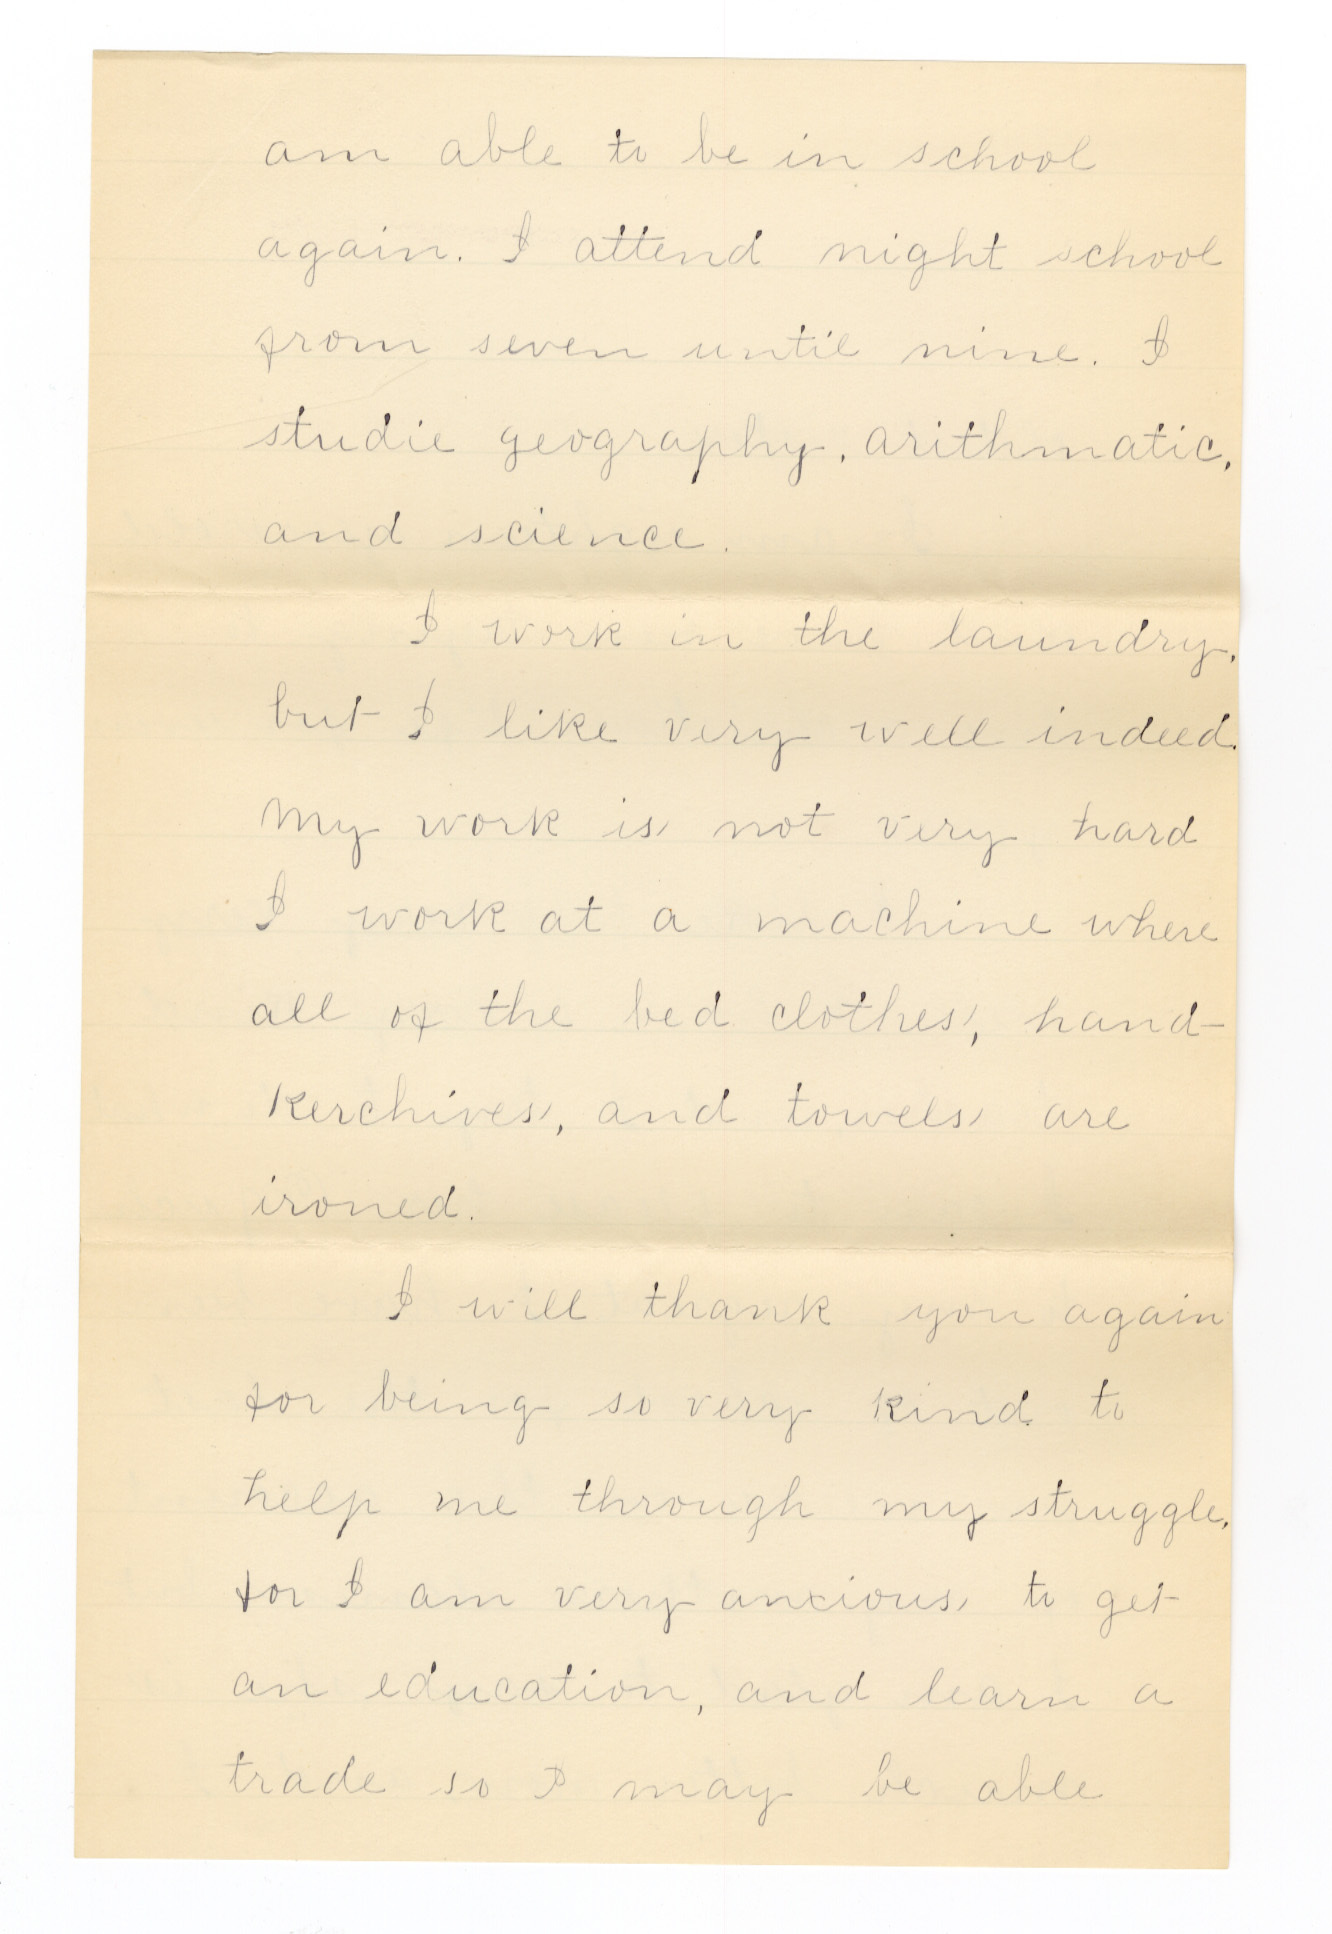 am able to be in school
again. I attend night school
from seven until nine. I
studie geography, arithmatic,
and science.
I work in the laundry,
but I like very well indeed.
My work is not very hard
I work at a machine where
all of the bed clothes, hand-
kerchives, and towels are
ironed.
I will thank you again
for being so very kind to
help me through my struggle,
for I am very anxious to get
an education, and learn a
trade so I may be able